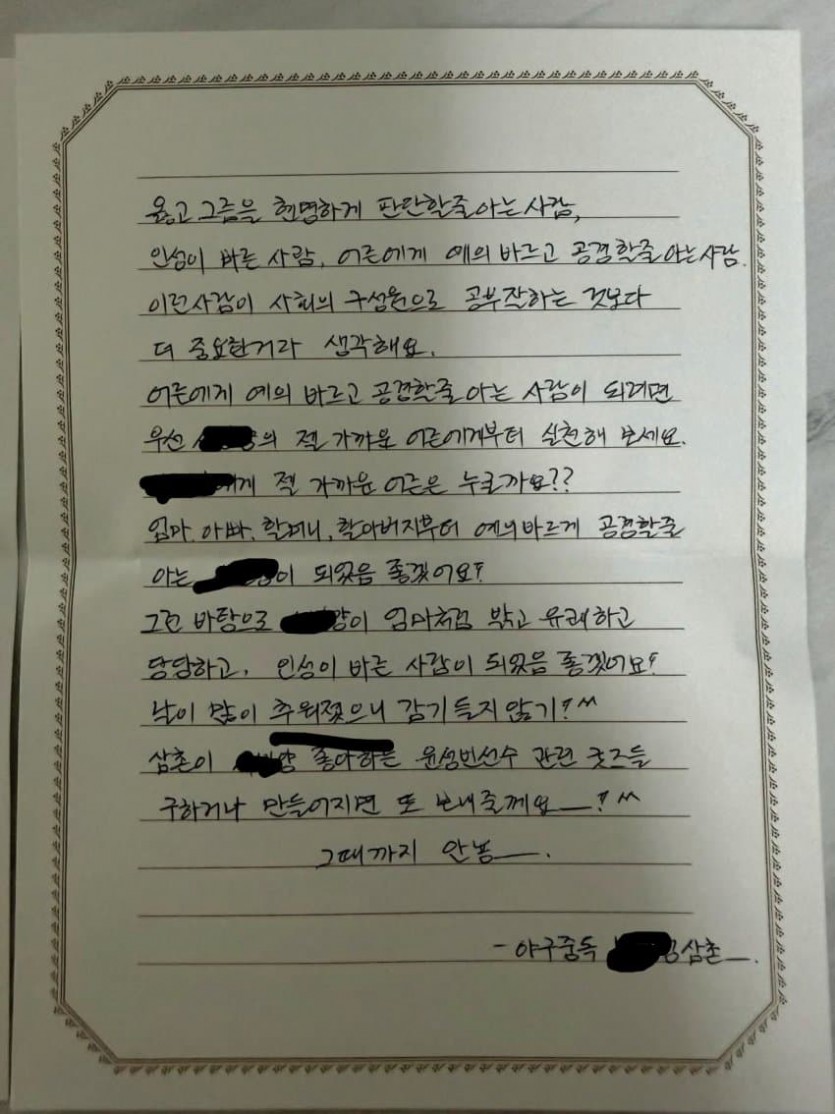 옳고 그름을 현명하게 판단할줄아는사람,
인성이 바른 사람, 어른에게 예의 바르고 공경할줄아는사람.
이런사람이 사회의 구성원으로 공부잘하는 것보다
더 중요한거라 생각해요.
어른에게 예의 바르고 공경할줄 아는 사람이 되려면
우선 의 젤 가까운 어른에게부터 실천해 보세요.
에게 젤 가까운 어른은 누굴까요??
엄마, 아빠, 할머니, 할아버지부터 예의바르게 공경할줄
아는 이 되었음 좋겠어요!
그런 바탕으로 양이 엄마처럼 밝고 유쾌하고
당당하고, 인성이 바른 사람이 되었음 좋겠어요!
날이 많이 추워졌으니 감기 들지 않기!^^
삼촌이 양 좋아하는 윤성빈선수 관련 굿즈들
구하거나 만들어지면 또 보내줄께요__!^^
그때까지 안뇽__.
- 야구중독 삼촌__.